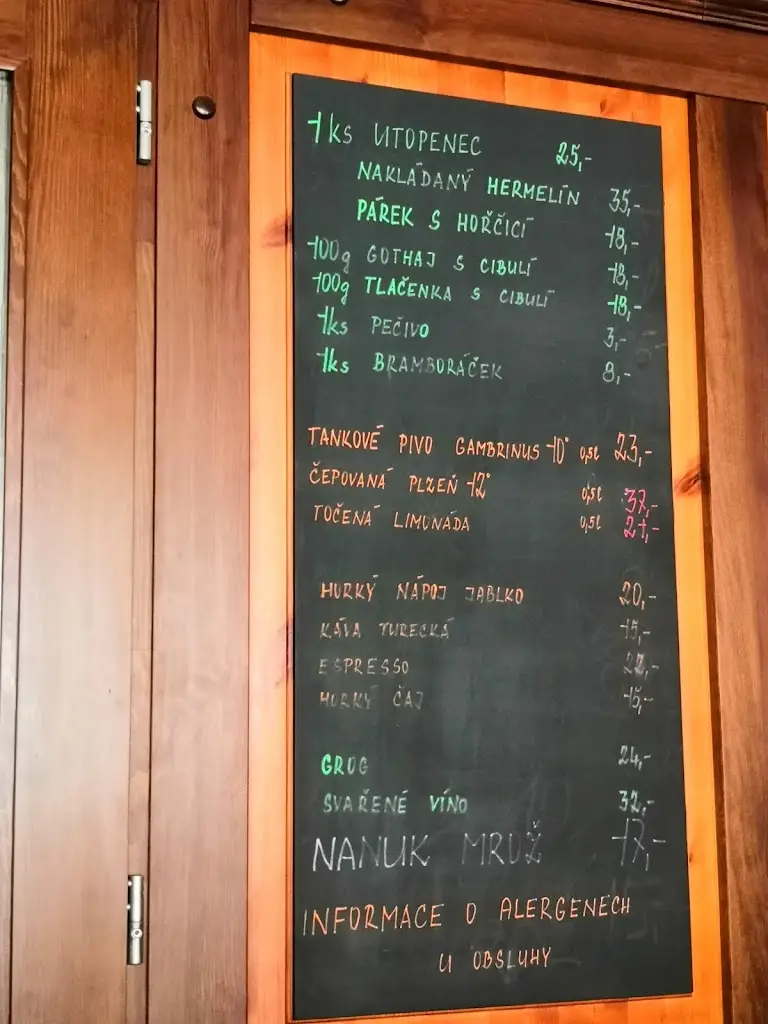 1ks UTOPENEC 25,-
NAKLÁDANÝ HERMELÍN 35,-
PÁREK S HOŘČICÍ 18,-
100g GOTHAJ S CIBULÍ 18,-
100g TLAČENKA S CIBULÍ 18,-
1ks PEČIVO 3,-
1ks BRAMBORÁČEK 8,-
TANKOVÉ PIVO GAMBRINUS 10° 0,5l 23,-
ČEPOVANÁ PLZEŇ 12° 0,5l 37,-
TOČENÁ LIMONÁDA 0,5l 21,-
HORKÝ NÁPOJ JABLKO 20,-
KÁVA TURECKÁ 15,-
ESPRESSO
HORKÝ ČAJ 15,-
GROG 24,-
SVAŘENÉ VÍNO 32,-
NANUK MROŽ 17,-
INFORMACE O ALERGENECH
U OBSLUHY